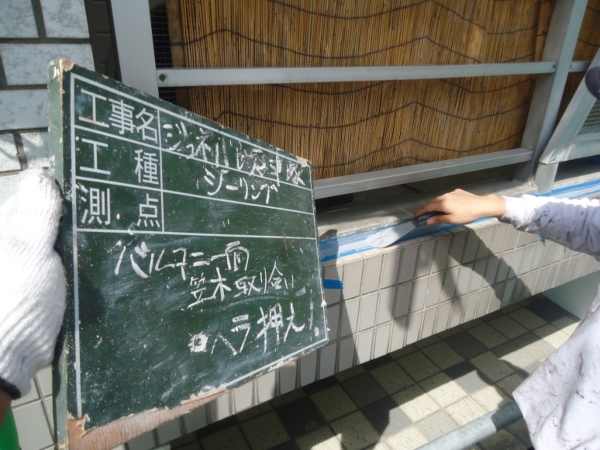 工事名
工種 シーリング
測点
バルコニー面
笠木取り合い
ヘラ押え